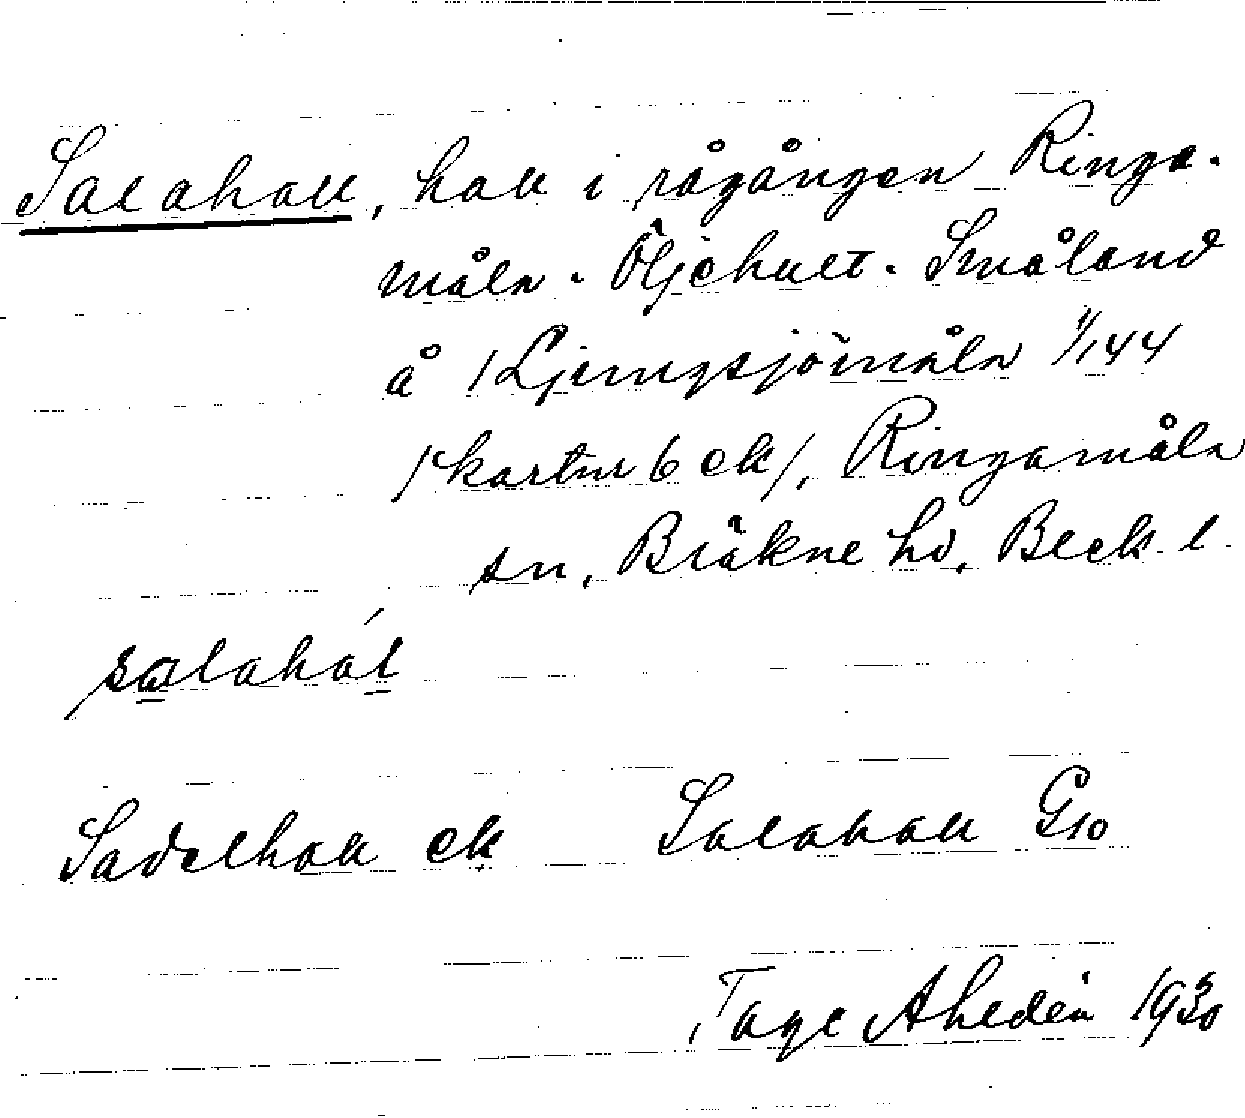 Salahall, hall i rågången Ringa-
måla - Öljehult - Småland
å /Ljungsjömåla 1/144
/kartur b ek/, Ringamåla
sn, Bräkne hd, Blek. l.
salahál
Sadelhall ek Salahall G10
Tage Ahldén 1930